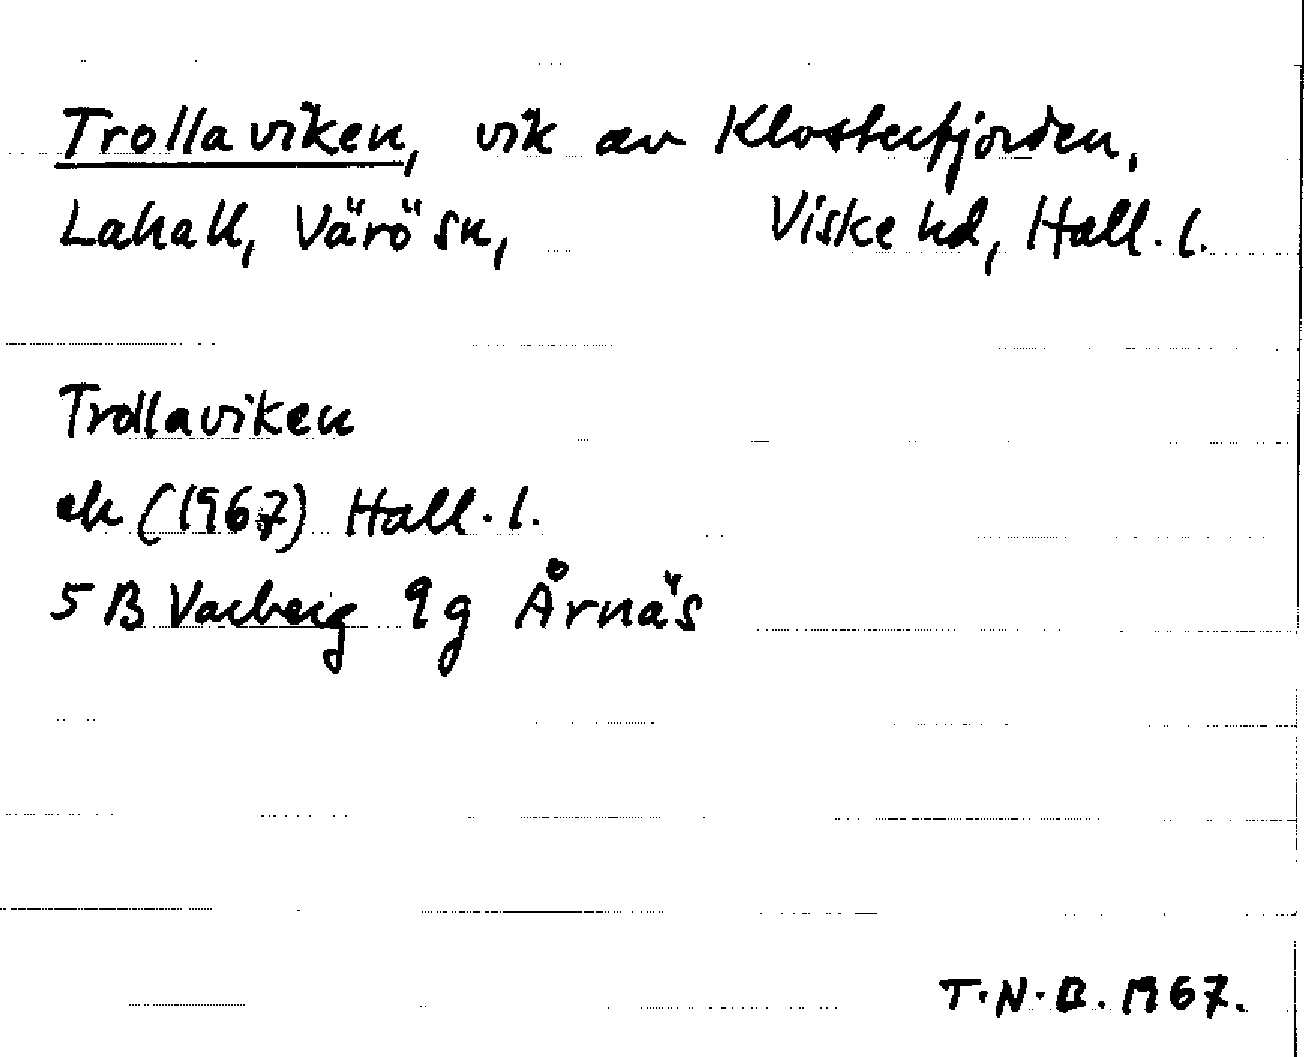 Trollaviken, vik av Klosterfjorden,
Lahall, Värö sn, Viske hd, Hall. l.
Trollaviken
ek (1967) Hall. l.
5 B Varberg 9g Årnäs
T. N. B. 1967.